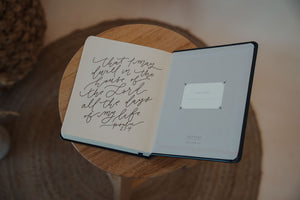 that I may
dwell in the
house of
the Lord
all the days
of my life
psalm
27:4